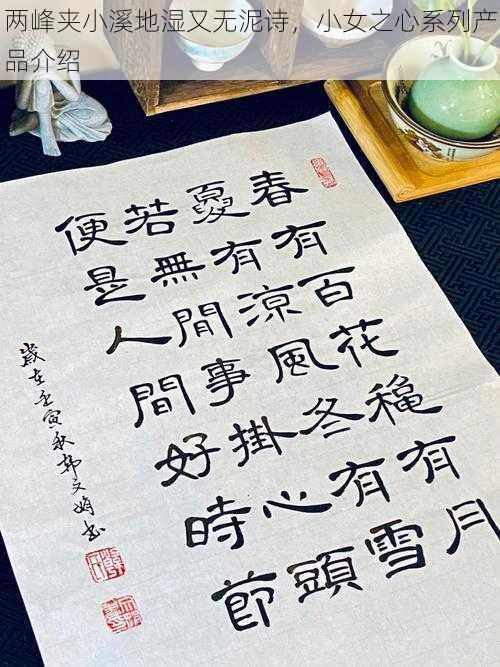 两峰夹小溪地湿又无泥诗，小女之心系列产
品介绍
春有百花穐有月
夏有涼風冬有雪
若無閒事掛心頭
便是人間好時節
歲在壬寅秋韩文娟书